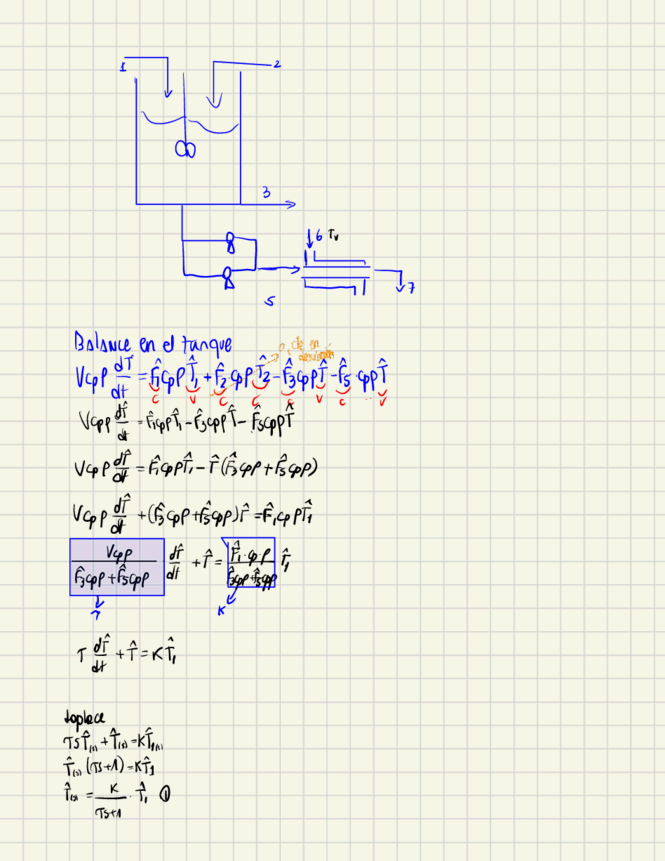 1
2
3
6 Tv
5
7
Balance en el tanque
Vcpρ dT̂/dt = F̂₁cpρT̂₁ + F̂₂cpρT̂₂ - F̂₃cpρT̂ - F̂₅cpρT̂
c v c c c v c v
Vcpρ dT̂/dt = F̂₁cpρT̂₁ - F̂₃cpρT̂ - F̂₅cpρT̂
Vcpρ dT̂/dt = F̂₁cpρT̂₁ - T̂(F̂₃cpρ + F̂₅cpρ)
Vcpρ dT̂/dt + (F̂₃cpρ + F̂₅cpρ)T̂ = F̂₁cpρT̂₁
Vcpρ/(F̂₃cpρ + F̂₅cpρ) dT̂/dt + T̂ = F̂₁·cpρ/(F̂₃cpρ + F̂₅cpρ) T̂₁
τ K
τ dT̂/dt + T̂ = KT̂₁
laplace
τsT̂(s) + T̂(s) = KT̂₁(s)
T̂(s) (τs+1) = KT̂₁
T̂(s) = K/(τs+1) · T̂₁ ①